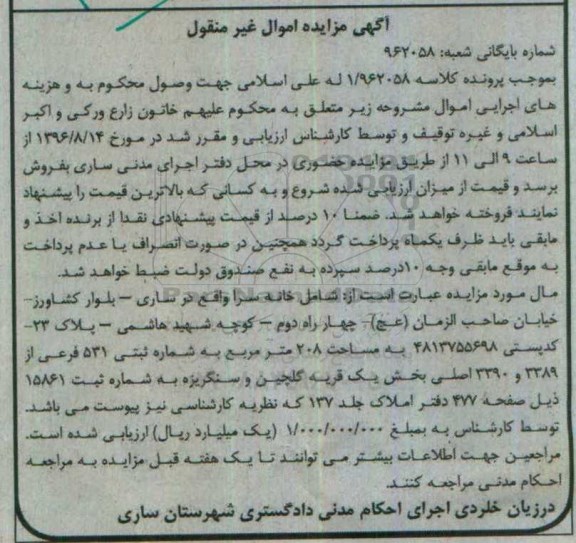 آگهی مزایده اموال غیر منقول
شماره بایگانی شعبه: ۹۶۲۰۵۸
بموجب پرونده کلاسه ۱/۹۶۲۰۵۸ له علی اسلامی جهت وصول محکوم به و هزینه
های اجرایی اموال مشروحه زیر متعلق به محکوم علیهم خاتون زارع ورکی و اکبر
اسلامی و غیره توقیف و توسط کارشناس ارزیابی و مقرر شد در مورخ ۱۳۹۶/۸/۱۴ از
ساعت ۹ الی ۱۱ از طریق مزایده حضوری در محل دفتر اجرای مدنی ساری بفروش
برسد و قیمت از میزان ارزیابی شده شروع و به کسانی که بالاترین قیمت را پیشنهاد
نمایند فروخته خواهد شد. ضمنا ۱۰ درصد از قیمت پیشنهادی نقدا از برنده اخذ و
مابقی باید ظرف یکماه پرداخت گردد همچنین در صورت انصراف یا عدم پرداخت
به موقع مابقی وجه ۱۰درصد سپرده به نفع صندوق دولت ضبط خواهد شد.
مال مورد مزایده عبارت است از: شامل خانه سرا واقع در ساری – بلوار کشاورز–
خیابان صاحب الزمان (عج)– چهار راه دوم – کوچه شهید هاشمی – پلاک ۲۳–
کدپستی ۴۸۱۳۷۵۵۶۹۸ به مساحت ۲۰۸ متر مربع به شماره ثبتی ۵۳۱ فرعی از
۳۳۸۹ و ۳۳۹۰ اصلی بخش یک قریه گلچین و سنگریزه به شماره ثبت ۱۵۸۶۱
ذیل صفحه ۴۷۷ دفتر املاک جلد ۱۳۷ که نظریه کارشناسی نیز پیوست می باشد.
توسط کارشناس به بمبلغ ۱/۰۰۰/۰۰۰/۰۰۰ (یک میلیارد ریال) ارزیابی شده است.
مراجعین جهت اطلاعات بیشتر می توانند تا یک هفته قبل مزایده به مراجعه
احکام مدنی مراجعه کنند.
درزیان خلردی اجرای احکام مدنی دادگستری شهرستان ساری